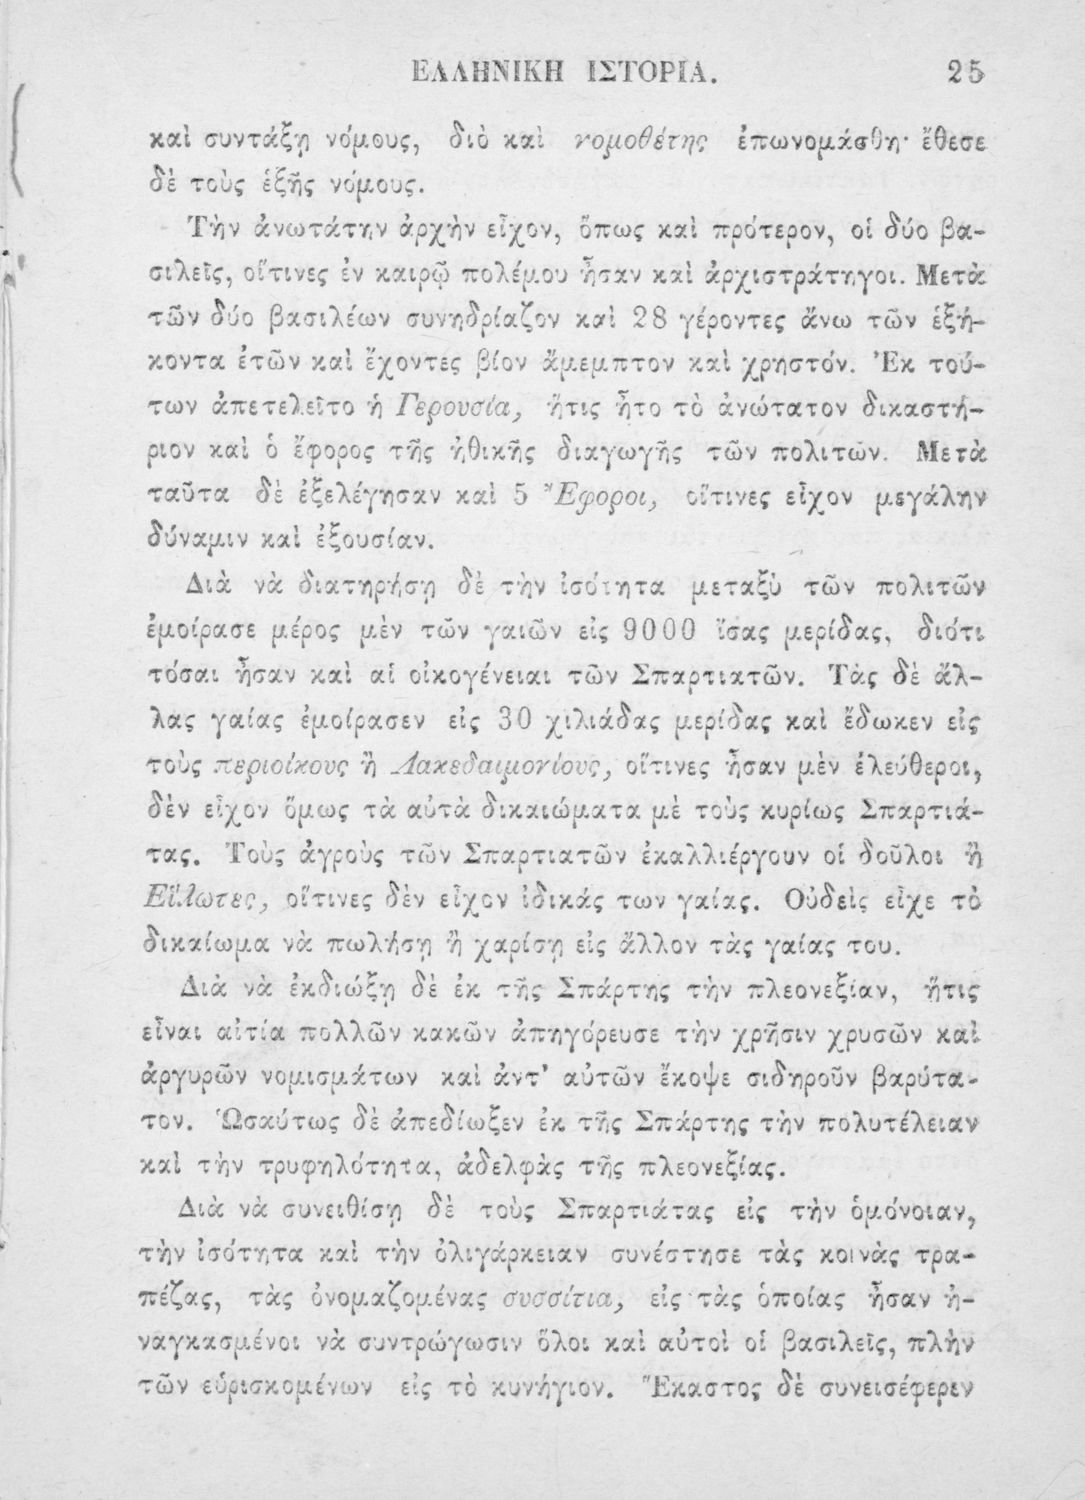 ΕΛΛΗΝΙΚΗ ΙΣΤΟΡΙΑ. 25
καὶ συντάξῃ νόμους, διὸ καὶ νομοθέτης ἐπωνομάσθη· ἔθεσε
δὲ τοὺς ἑξῆς νόμους.
Τὴν ἀνωτάτην ἀρχὴν εἶχον, ὅπως καὶ πρότερον, οἱ δύο βα-
σιλεῖς, οἵτινες ἐν καιρῷ πολέμου ἦσαν καὶ ἀρχιστράτηγοι. Μετὰ
τῶν δύο βασιλέων συνηδρίαζον καὶ 28 γέροντες ἄνω τῶν ἑξή-
κοντα ἐτῶν καὶ ἔχοντες βίον ἄμεμπτον καὶ χρηστόν. Ἐκ τού-
των ἀπετελεῖτο ἡ Γερουσία, ἥτις ἦτο τὸ ἀνώτατον δικαστή-
ριον καὶ ὁ ἔφορος τῆς ἠθικῆς διαγωγῆς τῶν πολιτῶν. Μετὰ
ταῦτα δὲ ἐξελέγησαν καὶ 5 Ἔφοροι, οἵτινες εἶχον μεγάλην
δύναμιν καὶ ἐξουσίαν.
Διὰ νὰ διατηρήσῃ δὲ τὴν ἰσότητα μεταξὺ τῶν πολιτῶν
ἐμοίρασε μέρος μὲν τῶν γαιῶν εἰς 9000 ἴσας μερίδας, διότι
τόσαι ἦσαν καὶ αἱ οἰκογένειαι τῶν Σπαρτιατῶν. Τὰς δὲ ἄλ-
λας γαίας ἐμοίρασεν εἰς 30 χιλιάδας μερίδας καὶ ἔδωκεν εἰς
τοὺς περιοίκους ἢ Λακεδαιμονίους, οἵτινες ἦσαν μὲν ἐλεύθεροι,
δὲν εἶχον ὅμως τὰ αὐτὰ δικαιώματα μὲ τοὺς κυρίως Σπαρτιά-
τας. Τοὺς ἀγροὺς τῶν Σπαρτιατῶν ἐκαλλιέργουν οἱ δοῦλοι ἢ
Εἵλωτες, οἵτινες δὲν εἶχον ἰδικάς των γαίας. Οὐδεὶς εἶχε τὸ
δικαίωμα νὰ πωλήσῃ ἢ χαρίσῃ εἰς ἄλλον τὰς γαίας του.
Διὰ νὰ ἐκδιώξῃ δὲ ἐκ τῆς Σπάρτης τὴν πλεονεξίαν, ἥτις
εἶναι αἰτία πολλῶν κακῶν ἀπηγόρευσε τὴν χρῆσιν χρυσῶν καὶ
ἀργυρῶν νομισμάτων καὶ ἀντ' αὐτῶν ἔκοψε σιδηροῦν βαρύτα-
τον. Ὡσαύτως δὲ ἀπεδίωξεν ἐκ τῆς Σπάρτης τὴν πολυτέλειαν
καὶ τὴν τρυφηλότητα, ἀδελφὰς τῆς πλεονεξίας.
Διὰ νὰ συνειθίσῃ δὲ τοὺς Σπαρτιάτας εἰς τὴν ὁμόνοιαν,
τὴν ἰσότητα καὶ τὴν ὀλιγάρκειαν συνέστησε τὰς κοινὰς τρα-
πέζας, τὰς ὀνομαζομένας συσσίτια, εἰς τὰς ὁποίας ἦσαν ἠ-
ναγκασμένοι νὰ συντρώγωσιν ὅλοι καὶ αὐτοὶ οἱ βασιλεῖς, πλὴν
τῶν εὑρισκομένων εἰς τὸ κυνήγιον. Ἕκαστος δὲ συνεισέφερεν